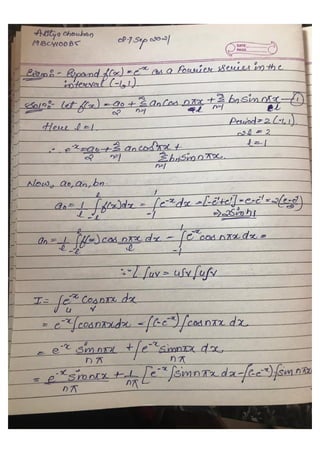 Aditya Chauhan
MBCY400B5 07 Sep 2021
DATE
PAGE
Expand f(x) = e^-x as a Fourier Series in the
interval (-1,1)
Soln:- Let f(x) = a0/2 + Σ n=1 an cos nπx/l + Σ n=1 bn sin nπx/l —①
Here l=1. Period = 2 (-1,1).
2l = 2
l = 1
∴ e^-x = a0/2 + Σ n=1 an cos nπx +
Σ n=1 bn sin nπx.
Now, a0, an, bn.
= 1/l ∫-l^l f(x)dx = ∫-1^1 e^-x dx = [-e^-1+e^1] = e-e^-1 =
⇒ 2 sin h1
an = 1/l ∫-l^l f(x) cos nπx/l dx - ∫-1^1 e^-x cos nπx dx =
∵ [∫uv = u∫v ∫u∫v
I = ∫ e^-x cos nπx dx
u v
= e^-x ∫cos nπx dx - ∫(-e^-x) ∫cos nπx dx
= e^-x sin nπx/nπ + ∫e^-x sin nπx/nπ dx
= e^-x sin nπx/nπ + 1/nπ [e^-x ∫sin nπx dx - ∫(-e^-x) ∫sin nπx